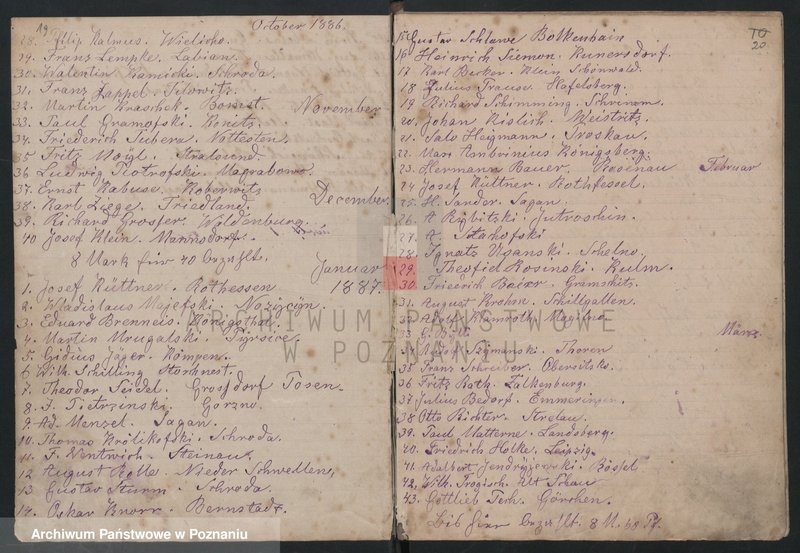 19
October 1886.
28. Filip Kalmus. Wielicho.
29. Franz Lempke. Labian.
30. Valentin Kamicki. Schroda.
31. Franz Zappel. Filowitz.
32. Martin Kraschek. Bomst.
November
33. Paul Gramofski. Konitz.
34. Friederich Subera. Nottesten.
35 Fritz Mögl. Stralsund.
36 Ludwig Piotrofski. Magrabowo.
37. Ernst Kabuse. Koberwitz
December.
38. Karl Liege. Friedland.
39. Richard Grosser. Wildenburg.
40 Josef Klein. Mannsdorf.
8 Mark für 40 bezahlt.
Januar
1887.
1. Josef Küttner. Rothessen
2. Wladislaus Majefski.
3. Eduard Brenneis. Königsthal.
4. Martin Mrugalski.
5. Gidius Jäger. Kömpen.
6 Wilh. Schilling Storchnest.
7. Theodor Seidel. Grossdorf Posen.
8. J. Pietrzinski. Gorzno.
9. Ad. Menzel. Sagan.
10. Thomas Krölikofski. Schroda.
11. F. Wentwich. Steinau.
12 August Rolle. Nieder Schwellen,
13 Gustav Sturm. Schroda.
14. Oskar Knorr. Bernstadt.
20
15 Gustav Schlawe Bolkenhain
16 Heinrich Siemon. Kunersdorf.
17 Karl Becker. Klein Schönwald.
18 Julius Krause. Hafelsberg.
19 Richard Schimming. Schrimm.
20. Johan Kislich. Weistritz.
21. Salo Heymann. Proskau.
22. Max Ambrinius Königsberg.
23. Hermann Bauer. Rosenau
Februar
24 Josef Küttner. Rothfessel.
25 H. Sander. Sagan.
26. A Rybitzki Jutroschin.
27. A. Stachofski
28. Ignatz Uganski. Schelno.
29. Theofiel Rosinski. Kulm.
30. Friedrich Baier. Gramschitz.
31. August Krohn. Schillgallen.
32. Adolf Kamroth. Magilno
33.
März.
34. Szymanski. Thoren
35 Franz Schreiber.
36 Fritz Rath. Falkenburg.
37 Julius Bedorf. Emmeringen.
38 Otto Richter. Strelau.
39. Paul Matterne. Landsberg.
40. Friedrich Holke. Leipzig.
41. Adalbert Jendryjewski. Bössel
42. Wilh. Alt Schau
43. Gottlieb Tech. Görchen.
Bis hier bezahlt. 8 M. 60 Pf.
ARCHIWUM PAŃSTWOWE
W POZNANIU
Archiwum Państwowe w Poznaniu